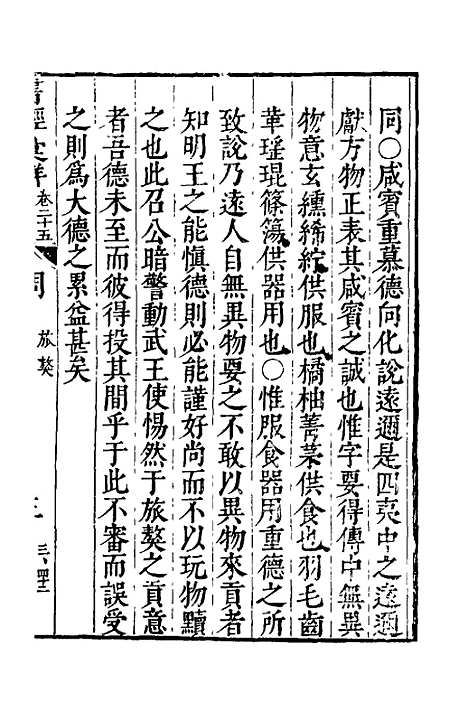 同○咸賓重慕德向化說遠邇是四夷中之遠邇
獻方物正表其咸賓之誠也惟字要得傳中無異
物意玄纁絺紵供服也橘柚菁茅供食也羽毛齒
革瑤琨篠簜供器用也○惟服食器用重德之所
致說乃遠人自無異物要之不敢以異物來貢者
知明王之能慎德則必能謹好尚而不以玩物黷
之也此召公暗警動武王使惕然于旅獒之貢意
者吾德未至而彼得投其間乎于此不審而誤受
之則為大德之累益甚矣
書經 卷二十五 周 旅獒